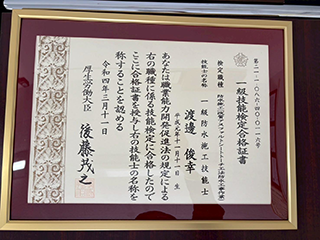 第二一-一-〇八六-四-〇〇一一六号
一級技能検定合格証書
検定職種
技能士の名称 一級防水施工技能士
渡邊 俊幸
平成元年十一月十一日 生
あなたは職業能力開発促進法の規定による
右の職種に係る技能検定に合格したので
ここに合格証書を授与し右の技能士の名称を
称することを認める
令和四年三月十一日
厚生労働大臣 後藤茂之